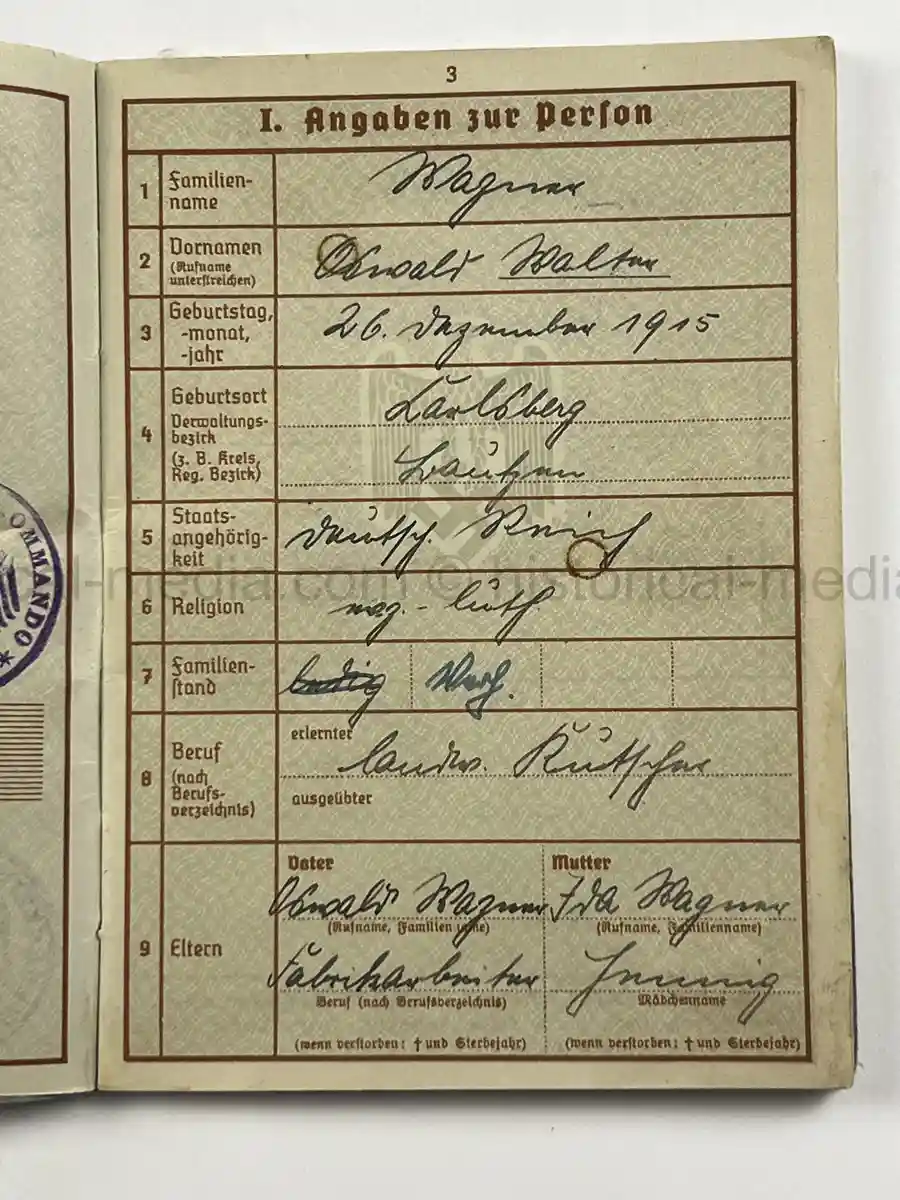 3
I. Angaben zur Person
1 Familien-
name
Wagner
2 Vornamen
(Rufname
unterstreichen)
Oswald Walter
3 Geburtstag,
-monat,
-jahr
26. Dezember 1915
4 Geburtsort
Verwaltungs-
bezirk
(z. B. Kreis,
Reg. Bezirk)
Karlsberg
Bautzen
5 Staats-
angehörig-
keit
deutsch. Reich
6 Religion
evg. - luth.
7 Familien-
stand
ledig Verh.
8 Beruf
(nach
Berufs-
verzeichnis)
erlernter
landw. Kutscher
ausgeübter
9 Eltern
Vater
Oswald Wagner
(Rufname, Familienname)
Fabrikarbeiter
Beruf (nach Berufsverzeichnis)
(wenn verstorben: † und Sterbejahr)
Mutter
Ida Wagner
(Rufname, Familienname)
Hennig
Mädchenname
(wenn verstorben: † und Sterbejahr)
OMMANDO *
l-media.com © historical-media